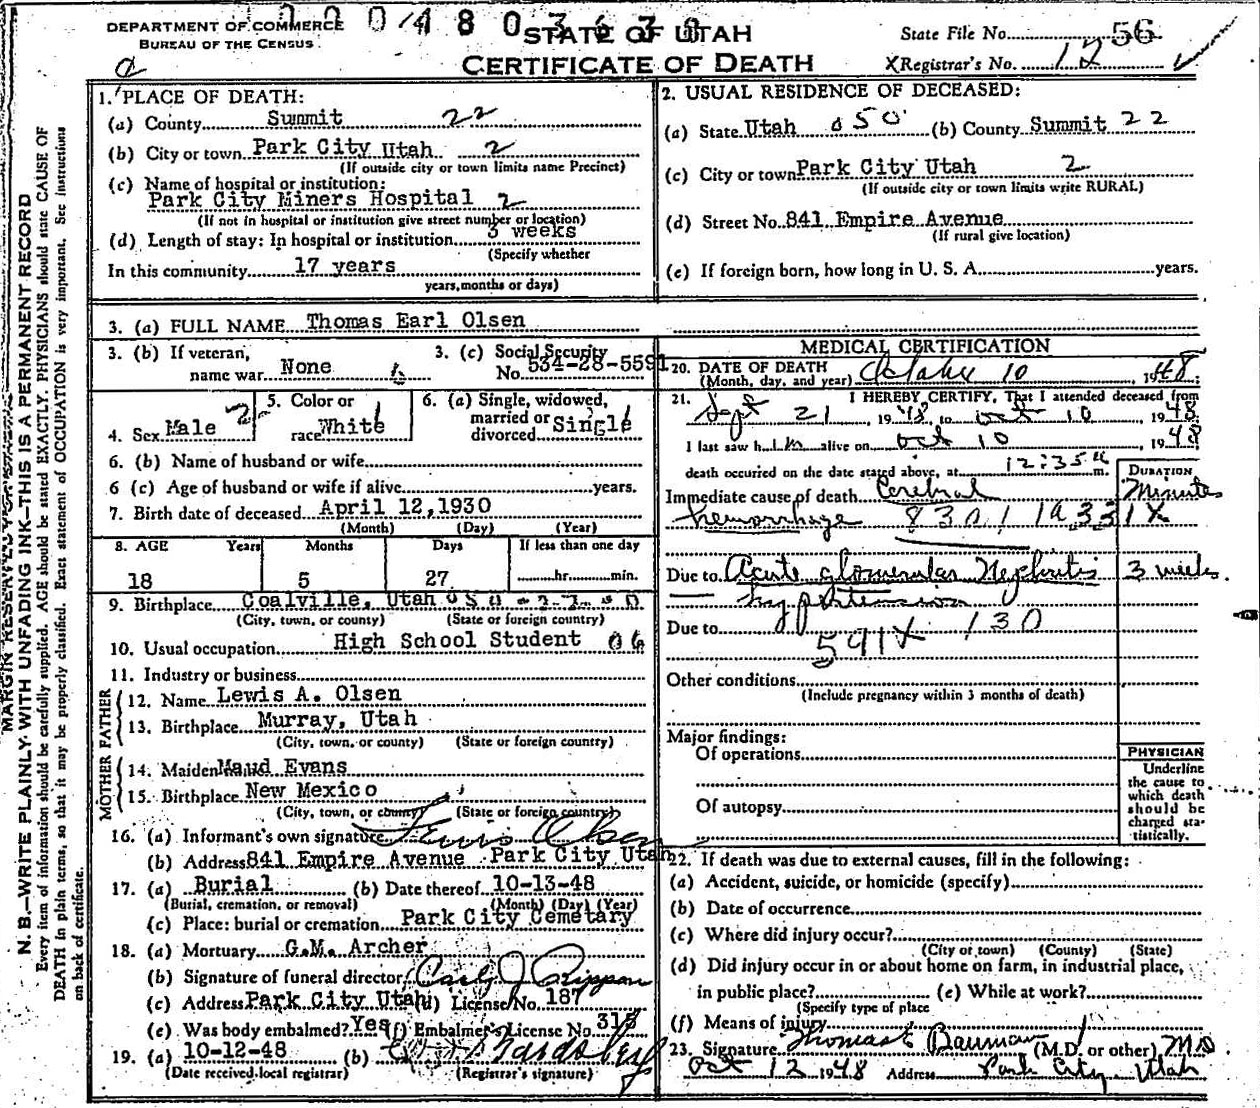 DEPARTMENT OF COMMERCE
BUREAU OF THE CENSUS
STATE OF UTAH
CERTIFICATE OF DEATH
State File No. 56
Registrar's No. 12
MARGIN RESERVED FOR BINDING
N. B.—WRITE PLAINLY WITH UNFADING INK—THIS IS A PERMANENT RECORD
Every item of information should be carefully supplied. AGE should be stated EXACTLY. PHYSICIANS should state CAUSE OF
DEATH in plain terms, so that it may be properly classified. Exact statement of OCCUPATION is very important. See instructions
on back of certificate.
1. PLACE OF DEATH:
(a) County Summit 22
(b) City or town Park City Utah 2
(If outside city or town limits name Precinct)
(c) Name of hospital or institution:
Park City Miners Hospital 2
(If not in hospital or institution give street number or location)
(d) Length of stay: In hospital or institution 3 weeks
(Specify whether
In this community 17 years
years, months or days)
2. USUAL RESIDENCE OF DECEASED:
(a) State Utah 050 (b) County Summit 22
(c) City or town Park City Utah 2
(If outside city or town limits write RURAL)
(d) Street No. 841 Empire Avenue
(If rural give location)
(e) If foreign born, how long in U. S. A. years.
3. (a) FULL NAME Thomas Earl Olsen
3. (b) If veteran,
name war None
3. (c) Social Security
No. 534-28-5591
4. Sex Male 2
5. Color or
race White
6. (a) Single, widowed,
married or
divorced Single
6. (b) Name of husband or wife
6 (c) Age of husband or wife if alive years.
7. Birth date of deceased April 12, 1930
(Month) (Day) (Year)
8. AGE Years Months Days If less than one day
18 5 27 hr. min.
9. Birthplace Coalville, Utah
(City, town, or county) (State or foreign country)
10. Usual occupation High School Student 06
11. Industry or business
FATHER
12. Name Lewis A. Olsen
13. Birthplace Murray, Utah
(City, town, or county) (State or foreign country)
MOTHER
14. Maiden Maud Evans
15. Birthplace New Mexico
(City, town, or county) (State or foreign country)
16. (a) Informant's own signature Lewis Olsen
(b) Address 841 Empire Avenue Park City Utah
17. (a) Burial (b) Date thereof 10-13-48
(Burial, cremation, or removal) (Month) (Day) (Year)
(c) Place: burial or cremation Park City Cemetary
18. (a) Mortuary G.M. Archer
(b) Signature of funeral director
(c) Address Park City Utah (d) License No. 187
(e) Was body embalmed? Yes (f) Embalmer's License No. 315
19. (a) 10-12-48 (b)
(Date received local registrar) (Registrar's signature)
MEDICAL CERTIFICATION
20. DATE OF DEATH
(Month, day, and year) October 10 1948
21. I HEREBY CERTIFY, That I attended deceased from
Sept 21, 1948 to Oct 10 1948
I last saw him alive on Oct 10 1948
death occurred on the date stated above, at 12:35 m.
DURATION
Immediate cause of death Cerebral Minutes
hemorrhage 8301 19 331X
Due to Acute glomerular Nephritis 3 weeks
hypertension
Due to 591X 130
Other conditions
(Include pregnancy within 3 months of death)
Major findings:
Of operations
Of autopsy
PHYSICIAN
Underline
the cause to
which death
should be
charged sta-
tistically.
22. If death was due to external causes, fill in the following:
(a) Accident, suicide, or homicide (specify)
(b) Date of occurrence
(c) Where did injury occur?
(City or town) (County) (State)
(d) Did injury occur in or about home on farm, in industrial place,
in public place? (e) While at work?
(Specify type of place
(f) Means of injury
23. Signature Thomas Bauman (M.D. or other) MD
Oct 12 1948 Address Park City, Utah